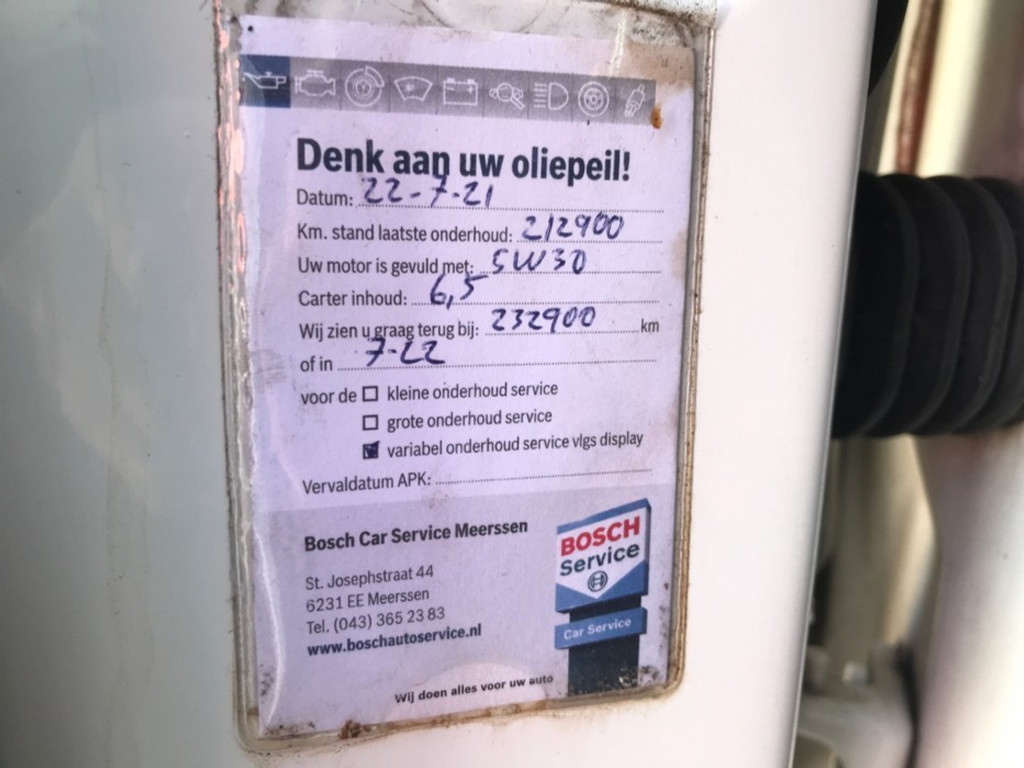 Denk aan uw oliepeil!
Datum: 22-7-21
Km. stand laatste onderhoud: 212900
Uw motor is gevuld met: 5W30
Carter inhoud: 6,5
Wij zien u graag terug bij: 232900 km
of in 7-22
voor de ☐ kleine onderhoud service
☐ grote onderhoud service
☑ variabel onderhoud service vlgs display
Vervaldatum APK:
Bosch Car Service Meerssen
St. Josephstraat 44
6231 EE Meerssen
Tel. (043) 365 23 83
www.boschautoservice.nl
BOSCH
Service
Car Service
Wij doen alles voor uw auto